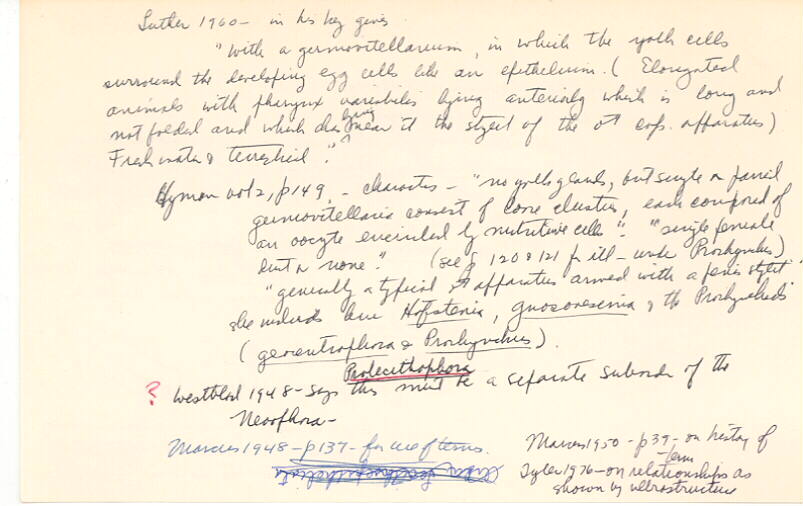 Luther 1960 - in his key gives
"With a germovitellarium, in which the yolk cells
surround the developing egg cells like an epithelium. (Elongated
animals with pharynx variabilis lying anteriorly which is long and
not folded and which has lying near it the stylet of the ♂ cop. apparatus)
Freshwater & terrestrial."
Hyman vol 2, p 149 - characters - "no yolk glands, but single or paired
germovitellaria consist of cone clusters, each composed of
an oocyte encircled by nutritive cells". "single female
duct or none." (see p 120 & 121 for ill - under Prorhynchus)
"generally a typical ♂ apparatus armed with a penis stylet"
she includes here Hofstenia, Gnosonesima & the Prorhynchids
(geocentrophora & Prorhynchus).
Prolecithophora
? Westblad 1948 - says this must be a separate suborder of the
Neoophora -
Marcus 1948 - p 137 - for use of terms.
Marcus 1950 - p 39 - on history of
term
Tyler 1976 - on relationships as
shown by ultrastructure